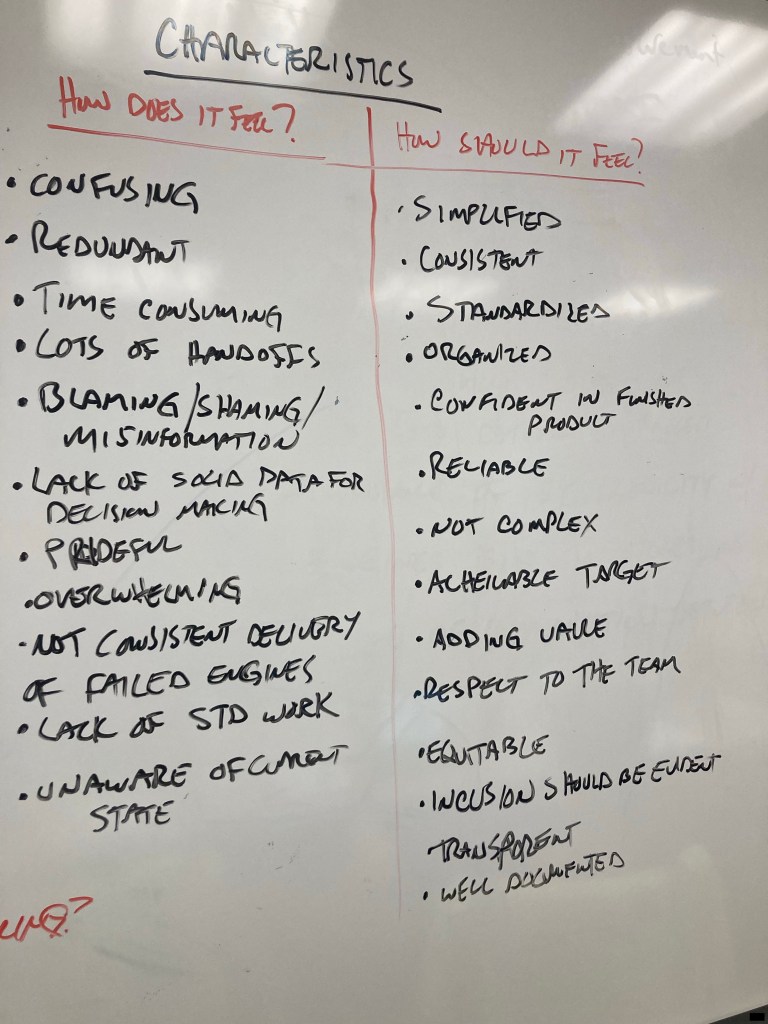 CHARACTERISTICS
HOW DOES IT FEEL?
• CONFUSING
• REDUNDANT
• TIME CONSUMING
• LOTS OF HANDOFFS
• BLAMING/SHAMING/
MISINFORMATION
• LACK OF SOLID DATA FOR
DECISION MAKING
• PRIDEFUL
• OVERWHELMING
• NOT CONSISTENT DELIVERY
OF FAILED ENGINES
• LACK OF STD WORK
• UNAWARE OF CURRENT
STATE
HOW SHOULD IT FEEL?
• SIMPLIFIED
• CONSISTENT
• STANDARDIZED
• ORGANIZED
• CONFIDENT IN FINISHED
PRODUCT
• RELIABLE
• NOT COMPLEX
• ACHEIVABLE TARGET
• ADDING VALUE
• RESPECT TO THE TEAM
• EQUITABLE
• INCUSION SHOULD BE EVIDENT
TRANSPORENT
• WELL DOCUMENTED